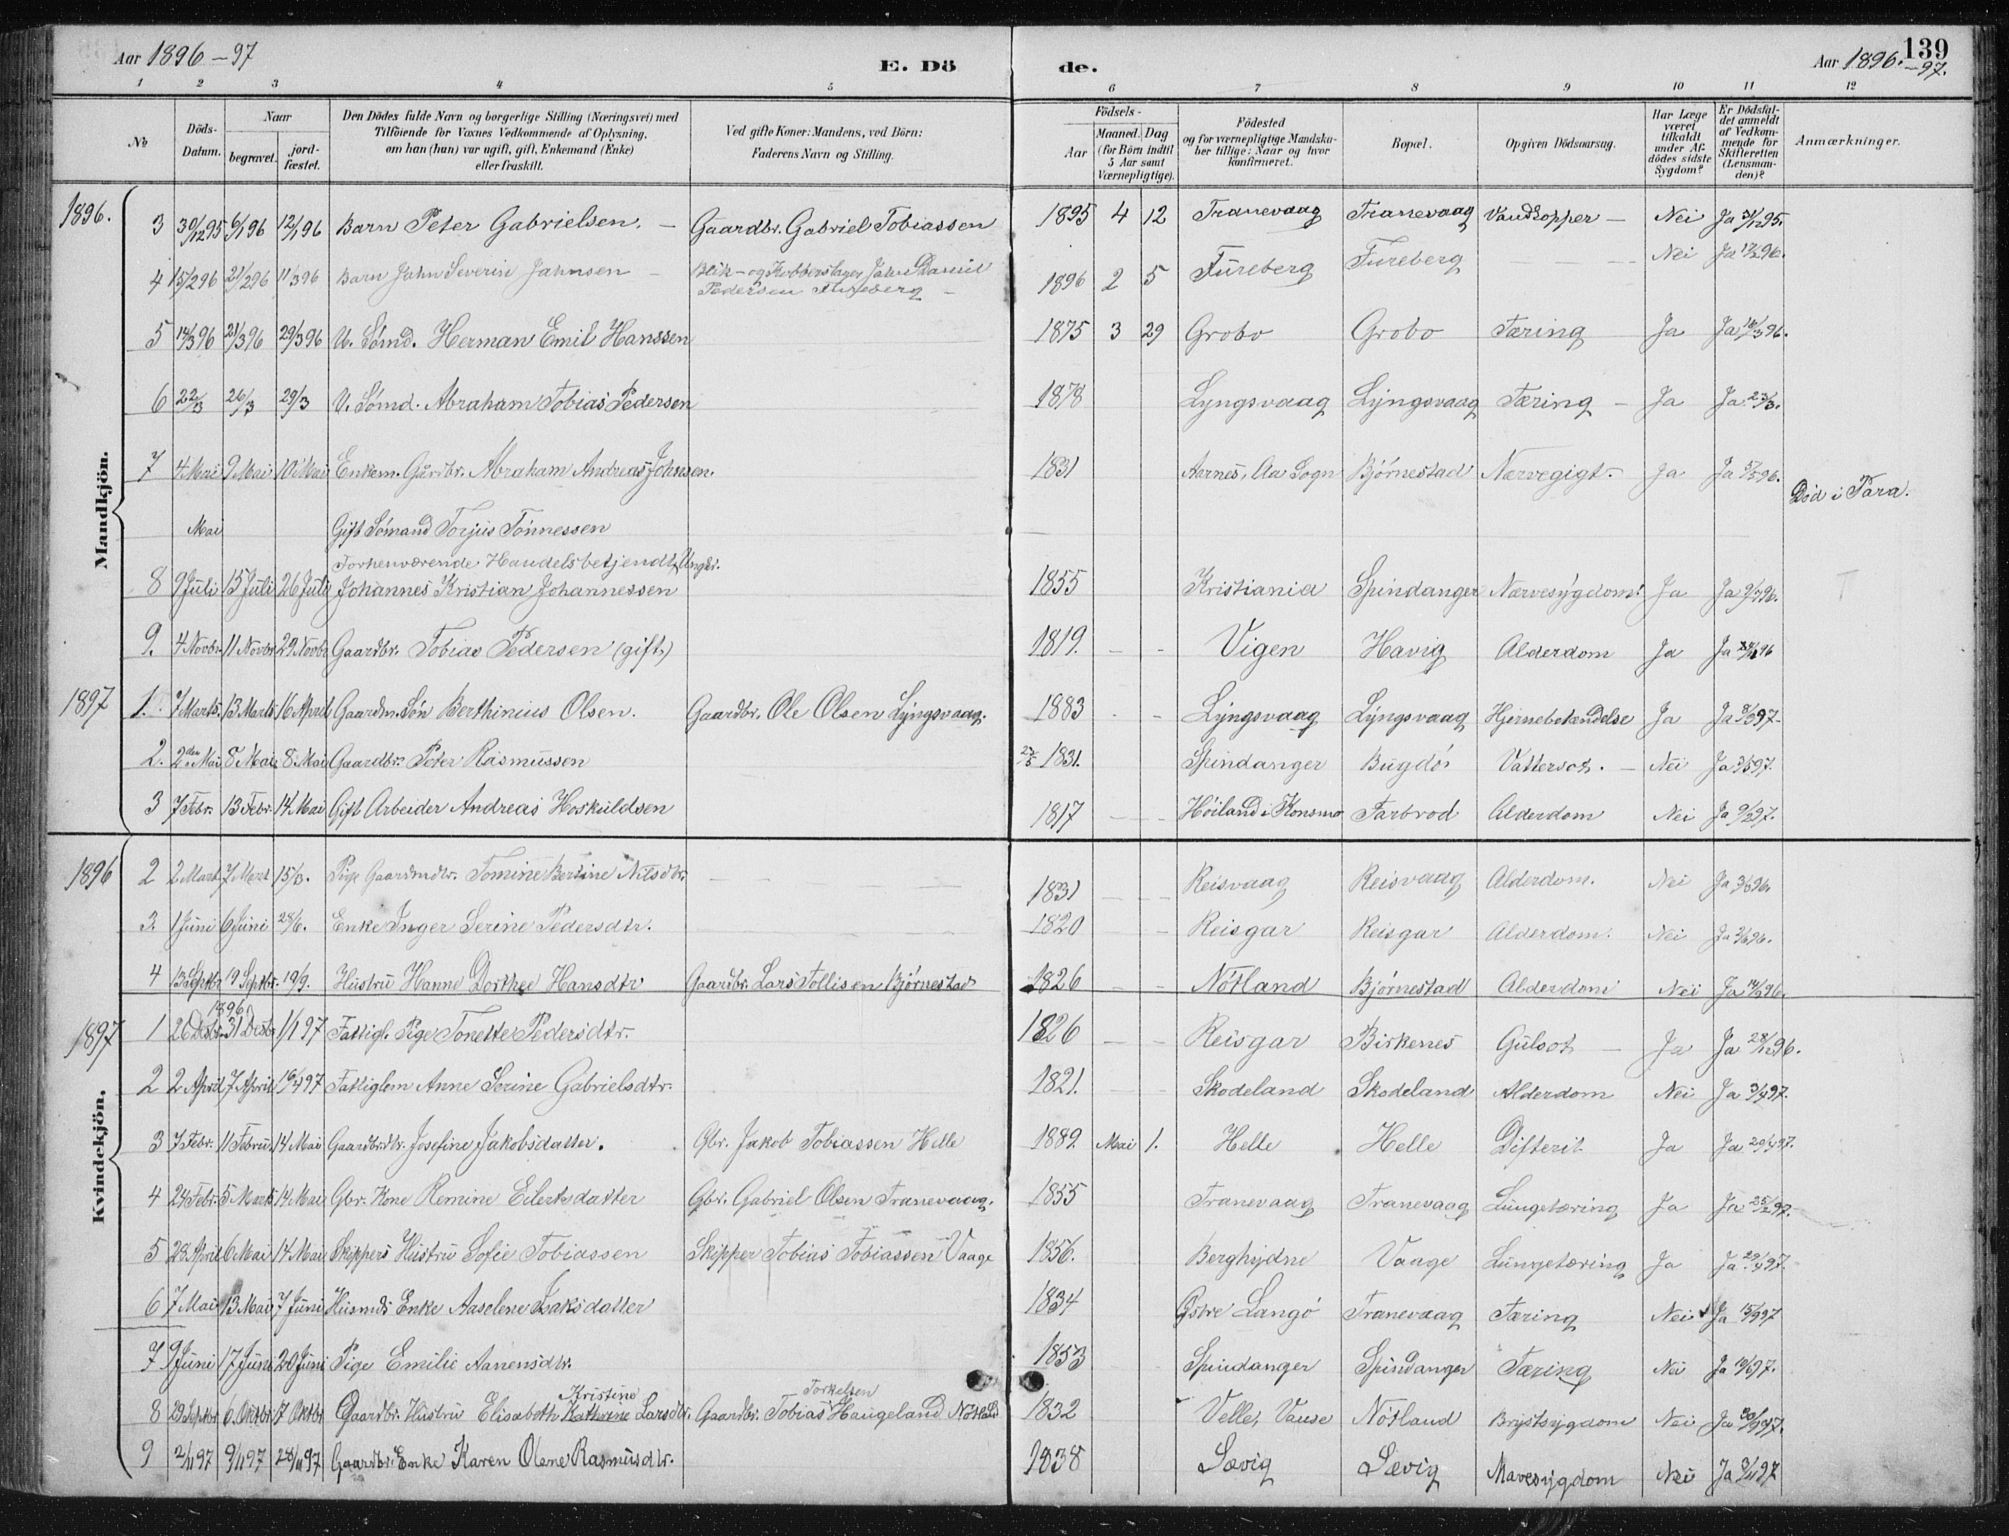 Aar 1896–97
E. Dö
de.
Aar 1896.–97.
139
1 2 3 4 5 6 7 8 9 10 11 12
№
Döds-Datum.
Naar
begravet.
jordfæstet.
Den Dödes fulde Navn og borgerlige Stilling (Næringsvei) med
Tilföiende for Voxnes Vedkommende af Oplysning,
om han (hun) var ugift, gift, Enkemand (Enke)
eller fraskilt.
Ved gifte Koner: Mandens, ved Börn:
Faderens Navn og Stilling.
Födsels-
Aar
Maaned. Dag
(for Börn indtil
5 Aar samt
Værnepligtige).
Födested
og for værnepligtige Mandskaber tillige: Naar og hvor
konfirmeret.
Bopæl.
Opgiven Dödsaarsag.
Har Læge været tilkaldt under Afdödes sidste Sygdom?
Er Dödsfaldet anmeldt af Vedkommende for Skifteretten (Lensmanden)?
Anmærkninger.
Mandkjön.
1896.
3 30/12 95 6/1 96 12/1 96 Barn Peter Gabrielsen. – Gaardbr. Gabriel Tobiassen 1895 4 12 Tranevaag Tranevaag Vandkopper – Nei Ja 31/12 95.
4 15/2 96 21/2 96 11/3 96 Barn Jahn Severin Jahnsen – Blik- og Kobberslager Jahn Daniel Pedersen Fureberg – 1896 2 5 Fureberg Fureberg – Nei Ja 17/2 96.
5 14/3 96 21/3 96 29/3 96 U. Sømd. Herman Emil Hanssen 1875 3 29 Grobo Grobo Tæring Ja Ja 16/3 96.
6 22/3 26/3 29/3 U. Sømd. Abraham Tobias Pedersen 1878 Lyngsvaag Lyngsvaag Tæring – Ja Ja 23/3.
7 4 Mai 9 Mai 10 Mai Enkem. Gårdbr. Abraham Andreas Johnsen. 1831 Aarnes, Aa Sogn Bjørnestad Nærvegigt. – Ja Ja 5/5 96.
Mai Gift Sømand Torjus Tønnessen Död i Para.
Forhenværende Handelsbetjendt, Ungkr.
8 9 Juli 15 Juli 26 Juli Johannes Kristian Johannessen 1855 Kristiania Spindanger Nærvesygdom. Ja Ja 9/7 96.
9. 4 Novbr. 11 Novbr 29 Novbr Gaardbr. Tobias Pedersen (gift) 1819. – – Vigen Havig Alderdom Ja Ja
1897
1. 7 Marts. 13 Marts 16 April Gaardm. Søn Berthinius Olsen. Gaardbr. Ole Olsen Lyngsvaag. 1883 – – Lyngsvaag Lyngsvaag Hjernebetændelse Ja Ja 8/3 97.
2. 2den Mai 8 Mai 8 Mai Gaardbr. Peter Rasmussen 1831. Spindanger Bugdö Vattersot. – Nei Ja 3/5 97.
3 7 Febr. 13 Febr. 14 Mai Gift Arbeider Andreas Hoskuldsen 1817 – – Höiland i Konsmo Farbrod Alderdom Nei Ja 9/2 97.
Kvindekjön.
1896
2 2 Mart 7 Mart 15/3. Pige Gaardmdtr. Tomine Bertine Nilsdtr. 1831 – – Reisvaag Reisvaag Alderdom. Nei Ja 3/3 96.
3. 1 Juni 6 Juni 28/6. Enke Inger Serine Pedersdtr. 1820 – Reisgar Reisgar Alderdom. Nei Ja 2/6 96.
4 13 Septbr. 19 Septbr. 19/9. Hustru Hanne Dorthee Hansdtr Gaardbr. Lars Tollisen Bjørnestad 1826 – – Nötland Bjørnestad Alderdom Nei Ja 14/9 96.
1897
1896
1 26 Decbr. 31 Decbr. 1/1 97 Fattigl. Pige Tonette Pedersdtr. 1826 – – Reisgar Birkenes Gulsot – Ja Ja 28/12 96.
2 2 April 7 April 16/4 97 Fattiglem Anne Serine Gabrielsdtr. 1821. – – Skodeland Skodeland Alderdom Nei Ja 3/4 97.
3 7 Febr. 11 Febru. 14 Mai Gaardbr.dtr. Josefine Jakobsdatter. Gbr. Jakob Tobiassen Helle 1889. Mai 1. Helle Helle Difterit Ja Ja
4 24 Febr. 5 Marts 14 Mai Gbr. Kone Remine Eilertsdatter Gbr. Gabriel Olsen Tranevaag. 1855 Tranevaag Tranevaag Lungetæring Ja Ja 25/2 97.
5 28 April 6 Mai 14 Mai Skippers Hustru Sofie Tobiassen Skipper Tobias Tobiassen Vaage 1856. Berghydne Vaage Lungetæring Ja Ja 29/4 97.
6 7 Mai 13 Mai 7 Juni Husmds Enke Aaselene Isaksdatter 1834 Østre Langö Tranevaag Tæring Nei Ja
7 9 Juni 17 Juni 20 Juni Pige Emilie Aanensdtr. 1853 Spindanger Spindanger Tæring Nei Ja
8 29 Septbr 6 Oktbr 17 Oktbr Gaardbr. Hustru Elisabeth Kathrine Kristine Larsdtr. Gaardbr. Tobias Torkelsen Haugeland Nötland 1832 – Velle, Vanse Nötland Brystsygdom Nei Ja 30/9 97.
9 2/11 97 9/11 97 28/11 97 Gaardbr. Enke Karen Olene Rasmusdtr. 1838 Sævig Sævig Mavesygdom Nei Ja 3/11 97